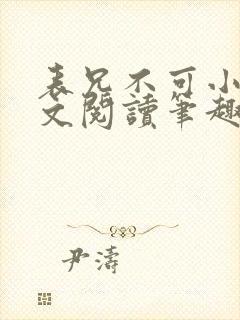 表兄不可小
文閱讀筆趣
尹濤